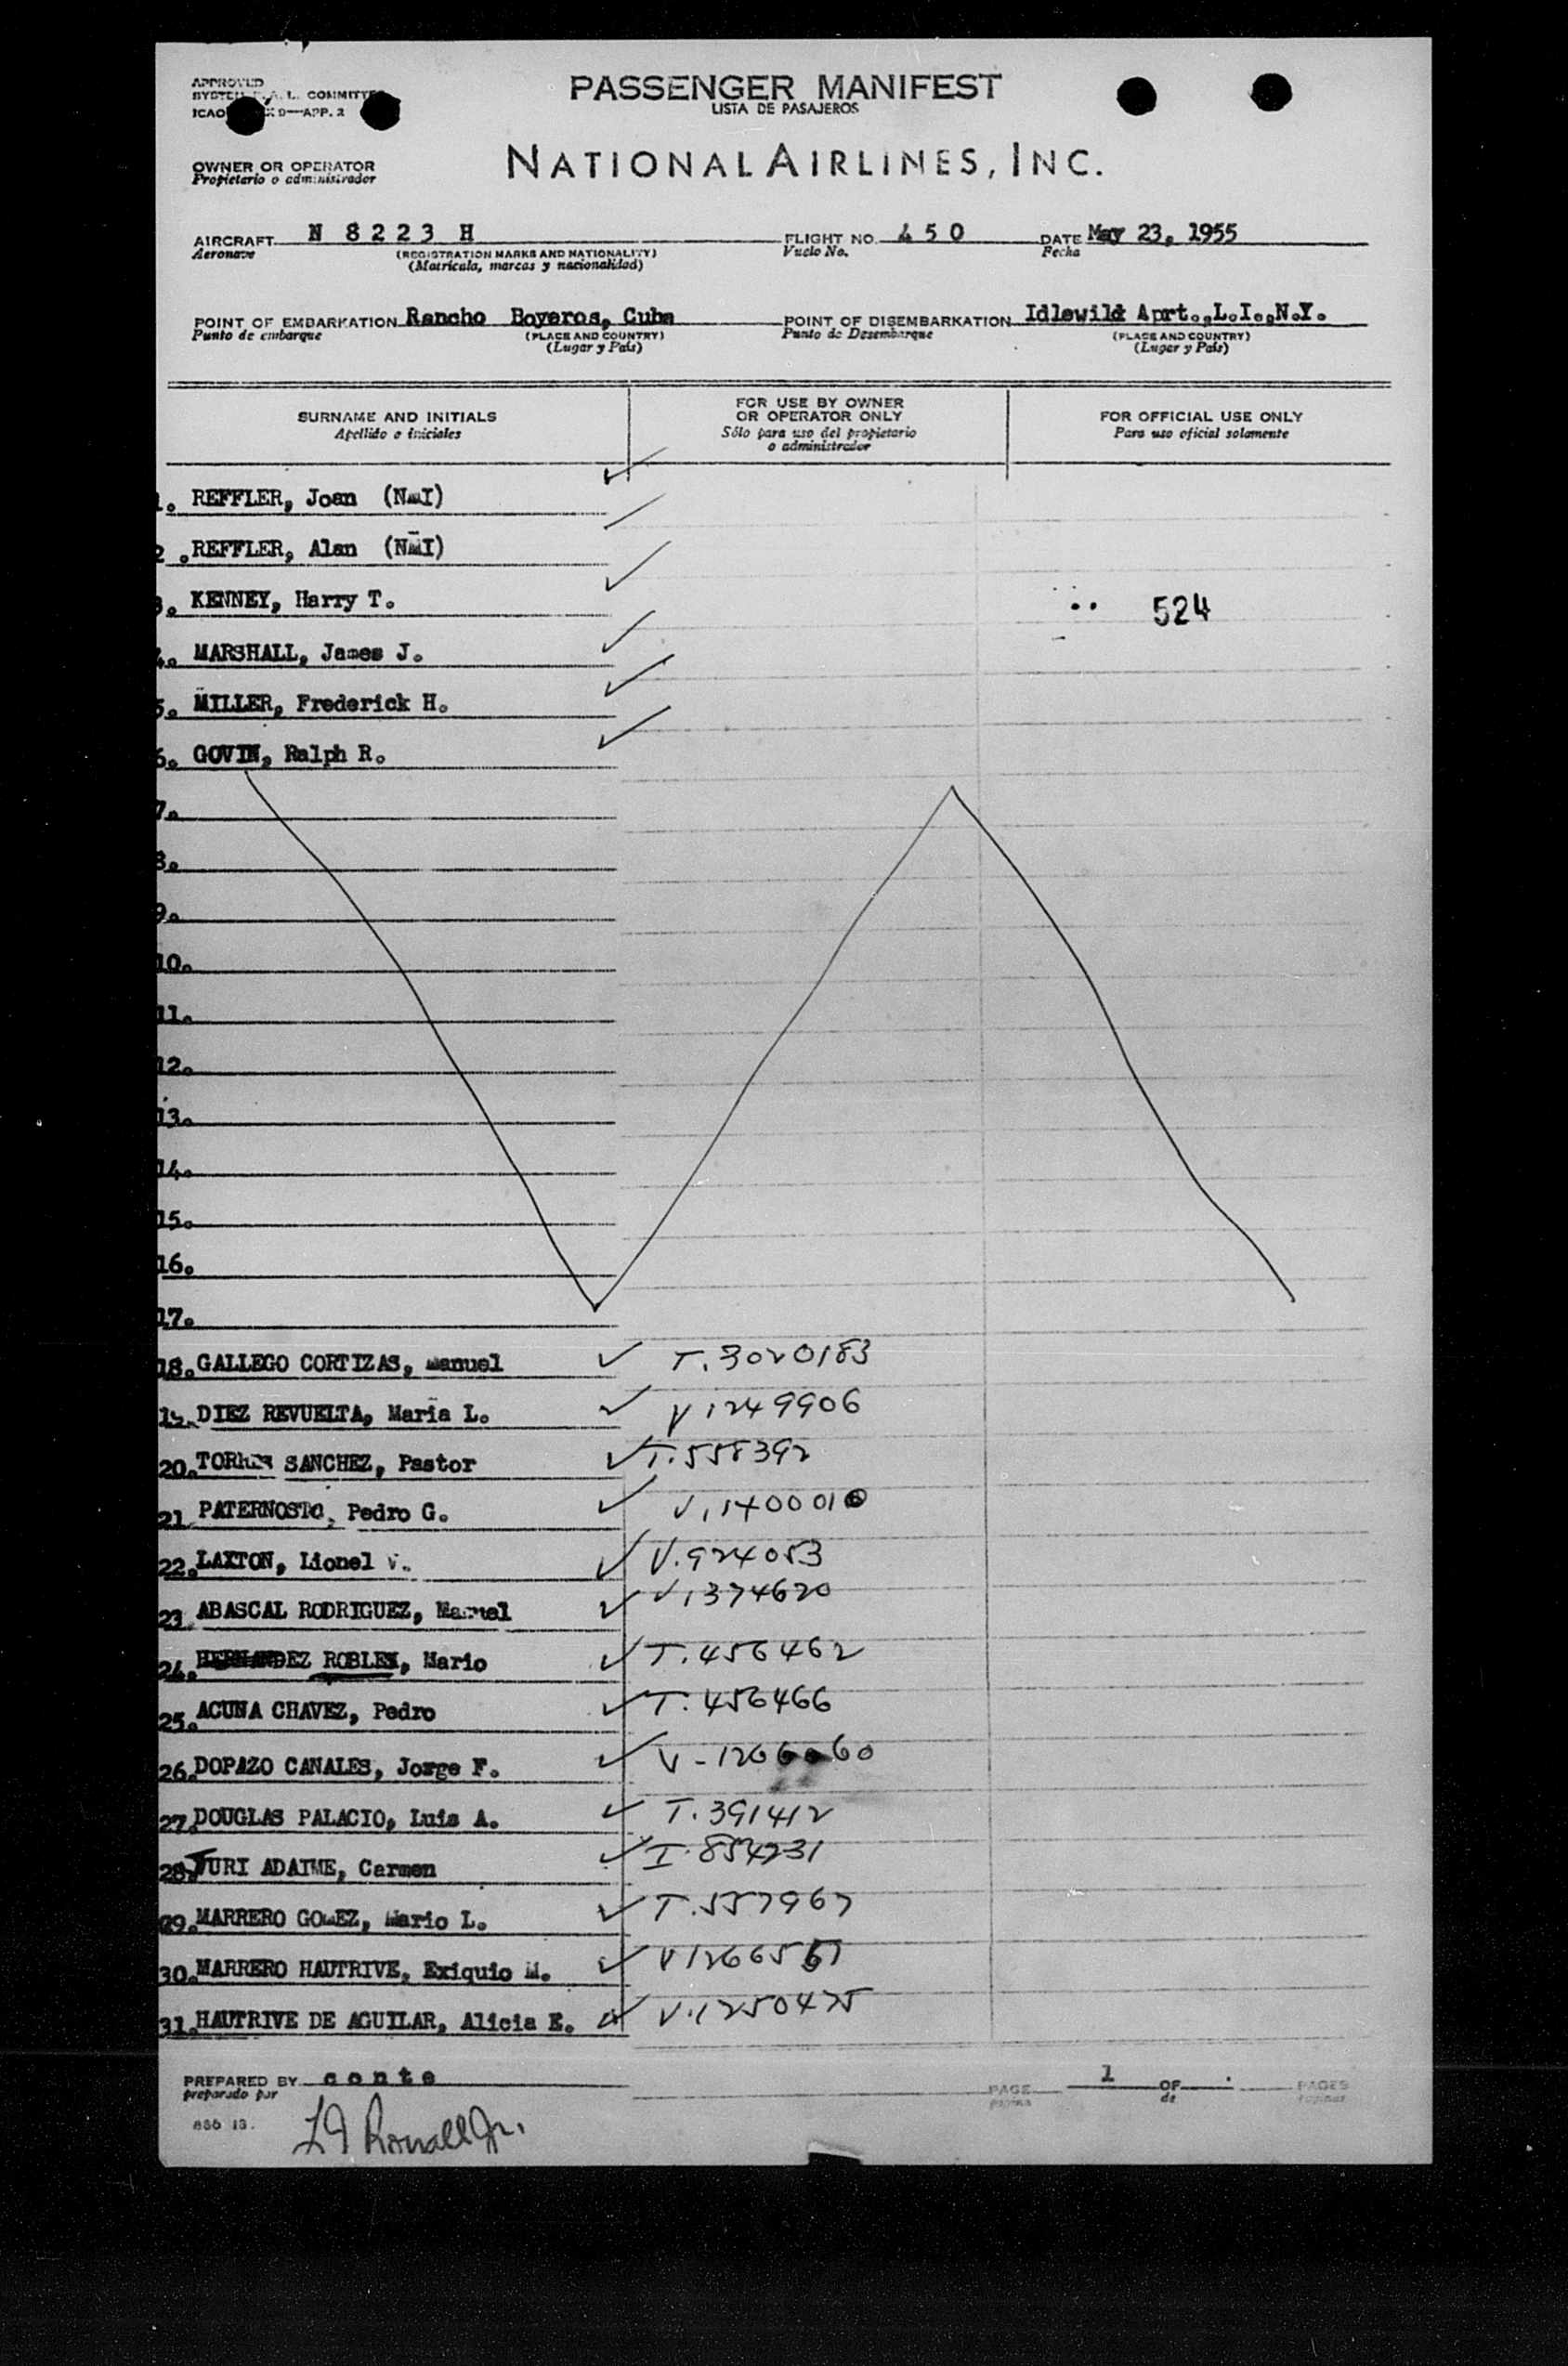 APPROVED
PASSENGER MANIFEST
LISTA DE PASAJEROS
COMMITTEE
ICAO 9—APP. 2
OWNER OR OPERATOR
Propietario o administrador
NATIONAL AIRLINES, INC.
AIRCRAFT N 8 2 2 3 H FLIGHT NO. 4 5 0 DATE May 23, 1955
Aeronave (REGISTRATION MARKS AND NATIONALITY) Vuelo No. Fecha
(Matrícula, marcas y nacionalidad)
POINT OF EMBARKATION Rancho Boyeros, Cuba POINT OF DISEMBARKATION Idlewild Aprt.,L.I.,N.Y.
Punto de embarque (PLACE AND COUNTRY) Punto de Desembarque (PLACE AND COUNTRY)
(Lugar y País) (Lugar y País)
SURNAME AND INITIALS
Apellido e iniciales
FOR USE BY OWNER
OR OPERATOR ONLY
Sólo para uso del propietario
o administrador
FOR OFFICIAL USE ONLY
Para uso oficial solamente
1. REFFLER, Joan (NMI)
2. REFFLER, Alan (NMI)
3. KENNEY, Harry T. 524
4. MARSHALL, James J.
5. MILLER, Frederick H.
6. GOVIN, Ralph R.
7.
8.
9.
10.
11.
12.
13.
14.
15.
16.
17.
18. GALLEGO CORTIZAS, Manuel T. 3020183
19. DIEZ REVUELTA, Maria L. V 1249906
20. TORRES SANCHEZ, Pastor T. 558392
21 PATERNOSTO, Pedro G. V, 1400010
22. LAXTON, Lionel V. V. 924053
23. ABASCAL RODRIGUEZ, Manuel V, 374620
24. HERNANDEZ ROBLES, Mario T. 456462
25. ACUNA CHAVEZ, Pedro T. 456466
26. DOPAZO CANALES, Jorge F.
27. DOUGLAS PALACIO, Luis A. T. 391412
28. TURI ADAIME, Carmen I. 854231
29. MARRERO GOMEZ, Mario L. T. 557967
30. MARRERO HAUTRIVE, Exiquio M.
31. HAUTRIVE DE AGUILAR, Alicia E. V. 1250425
PREPARED BY conte PAGE 1 OF PAGES
preparado por página de páginas